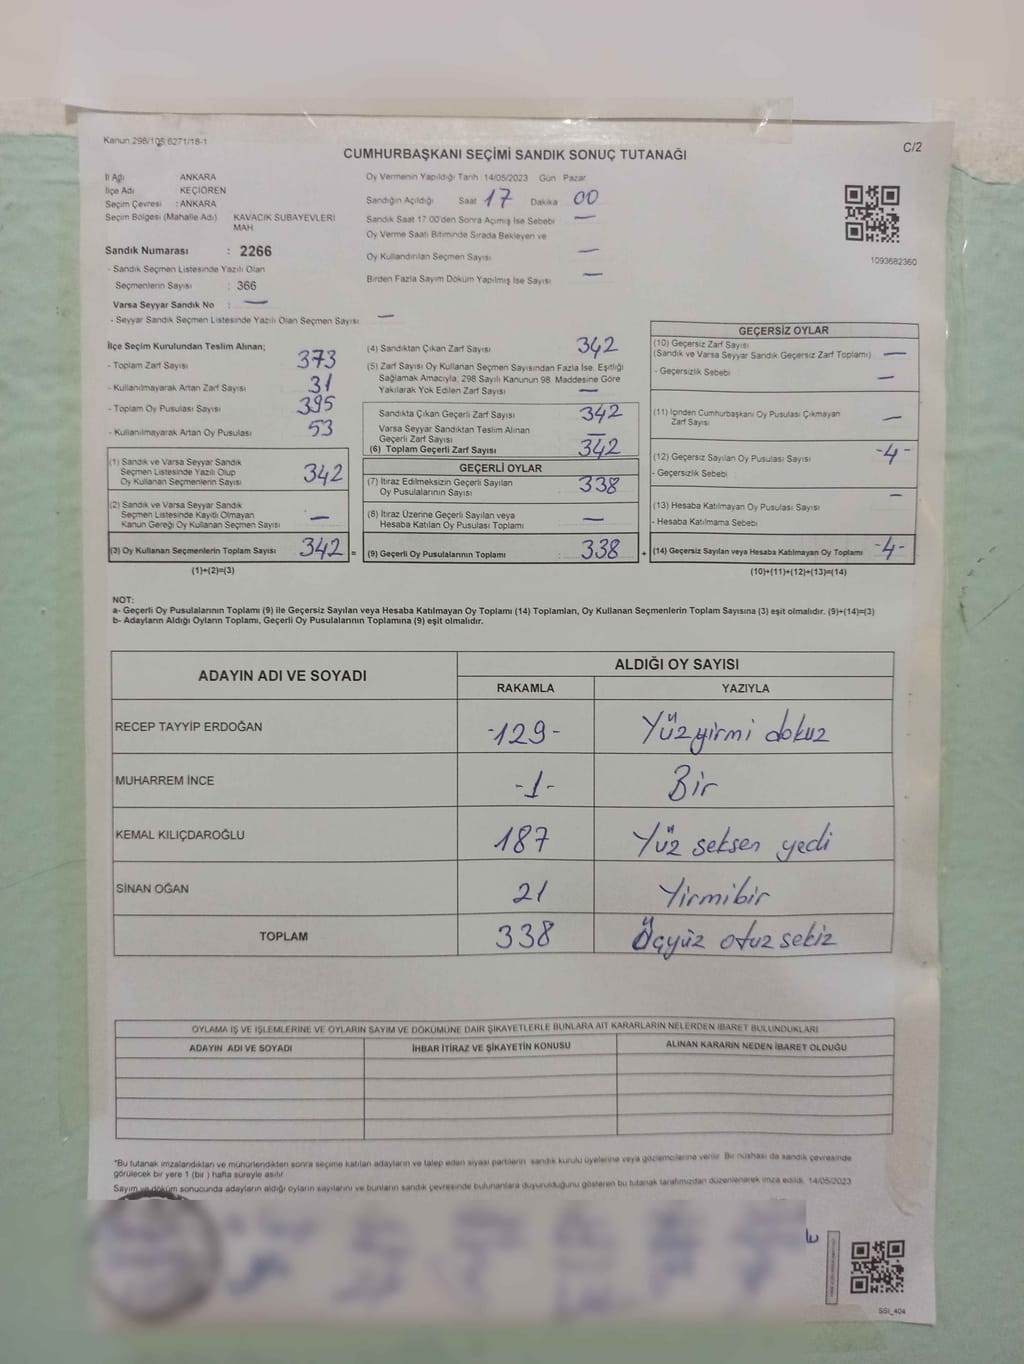 Kanun 298/105 6271/18-1
C/2
CUMHURBAŞKANI SEÇİMİ SANDIK SONUÇ TUTANAĞI
İl Adı ANKARA
İlçe Adı KEÇİÖREN
Seçim Çevresi : ANKARA
Seçim Bölgesi (Mahalle Adı) KAVACIK SUBAYEVLERİ MAH.
Sandık Numarası : 2266
- Sandık Seçmen Listesinde Yazılı Olan
Seçmenlerin Sayısı : 366
Varsa Seyyar Sandık No : —
- Seyyar Sandık Seçmen Listesinde Yazılı Olan Seçmen Sayısı —
Oy Vermenin Yapıldığı Tarih 14/05/2023 Gün Pazar
Sandığın Açıldığı Saat 17 Dakika 00
Sandık Saat 17:00'den Sonra Açılmış İse Sebebi —
Oy Verme Saati Bitiminde Sırada Bekleyen ve
Oy Kullandırılan Seçmen Sayısı —
Birden Fazla Sayım Döküm Yapılmış İse Sayısı —
1093682360
İlçe Seçim Kurulundan Teslim Alınan;
- Toplam Zarf Sayısı 373
- Kullanılmayarak Artan Zarf Sayısı 31
- Toplam Oy Pusulası Sayısı 395
- Kullanılmayarak Artan Oy Pusulası 53
(1) Sandık ve Varsa Seyyar Sandık
Seçmen Listesinde Yazılı Olup
Oy Kullanan Seçmenlerin Sayısı 342
(2) Sandık ve Varsa Seyyar Sandık
Seçmen Listesinde Kayıtlı Olmayan
Kanun Gereği Oy Kullanan Seçmen Sayısı —
(3) Oy Kullanan Seçmenlerin Toplam Sayısı 342 =
(1)+(2)=(3)
(4) Sandıktan Çıkan Zarf Sayısı 342
(5) Zarf Sayısı Oy Kullanan Seçmen Sayısından Fazla İse, Eşitliği
Sağlamak Amacıyla, 298 Sayılı Kanunun 98. Maddesine Göre
Yakılarak Yok Edilen Zarf Sayısı —
Sandıkta Çıkan Geçerli Zarf Sayısı 342
Varsa Seyyar Sandıktan Teslim Alınan
Geçerli Zarf Sayısı —
(6) Toplam Geçerli Zarf Sayısı 342
GEÇERLİ OYLAR
(7) İtiraz Edilmeksizin Geçerli Sayılan
Oy Pusulalarının Sayısı 338
(8) İtiraz Üzerine Geçerli Sayılan veya
Hesaba Katılan Oy Pusulası Toplamı —
(9) Geçerli Oy Pusulalarının Toplamı : 338 +
GEÇERSİZ OYLAR
(10) Geçersiz Zarf Sayısı
(Sandık ve Varsa Seyyar Sandık Geçersiz Zarf Toplamı) —
- Geçersizlik Sebebi —
(11) İçinden Cumhurbaşkanı Oy Pusulası Çıkmayan
Zarf Sayısı —
(12) Geçersiz Sayılan Oy Pusulası Sayısı -4-
- Geçersizlik Sebebi
(13) Hesaba Katılmayan Oy Pusulası Sayısı —
- Hesaba Katılmama Sebebi
(14) Geçersiz Sayılan veya Hesaba Katılmayan Oy Toplamı -4-
(10)+(11)+(12)+(13)=(14)
NOT:
a- Geçerli Oy Pusulalarının Toplamı (9) ile Geçersiz Sayılan veya Hesaba Katılmayan Oy Toplamı (14) Toplamları, Oy Kullanan Seçmenlerin Toplam Sayısına (3) eşit olmalıdır. (9)+(14)=(3)
b- Adayların Aldığı Oyların Toplamı, Geçerli Oy Pusulalarının Toplamına (9) eşit olmalıdır.
ADAYIN ADI VE SOYADI
ALDIĞI OY SAYISI
RAKAMLA YAZIYLA
RECEP TAYYİP ERDOĞAN -129- Yüzyirmi dokuz
MUHARREM İNCE -1- Bir
KEMAL KILIÇDAROĞLU 187 Yüz seksen yedi
SİNAN OĞAN 21 Yirmibir
TOPLAM 338 Üçyüz otuz sekiz
OYLAMA İŞ VE İŞLEMLERİNE VE OYLARIN SAYIM VE DÖKÜMÜNE DAİR ŞİKAYETLERLE BUNLARA AİT KARARLARIN NELERDEN İBARET BULUNDUKLARI
ADAYIN ADI VE SOYADI İHBAR İTİRAZ VE ŞİKAYETİN KONUSU ALINAN KARARIN NEDEN İBARET OLDUĞU
*Bu tutanak imzalandıktan ve mühürlendikten sonra seçime katılan adayların ve talep eden siyasi partilerin sandık kurulu üyelerine veya gözlemcilerine verilir. Bir nüshası da sandık çevresinde
görülecek bir yere 1 (bir) hafta süreyle asılır.
Sayım ve döküm sonucunda adayların aldığı oyların sayılarını ve bunların sandık çevresinde bulunanlara duyurulduğunu gösteren bu tutanak tarafımızdan düzenlenerek imza edildi. 14/05/2023
SSI_404